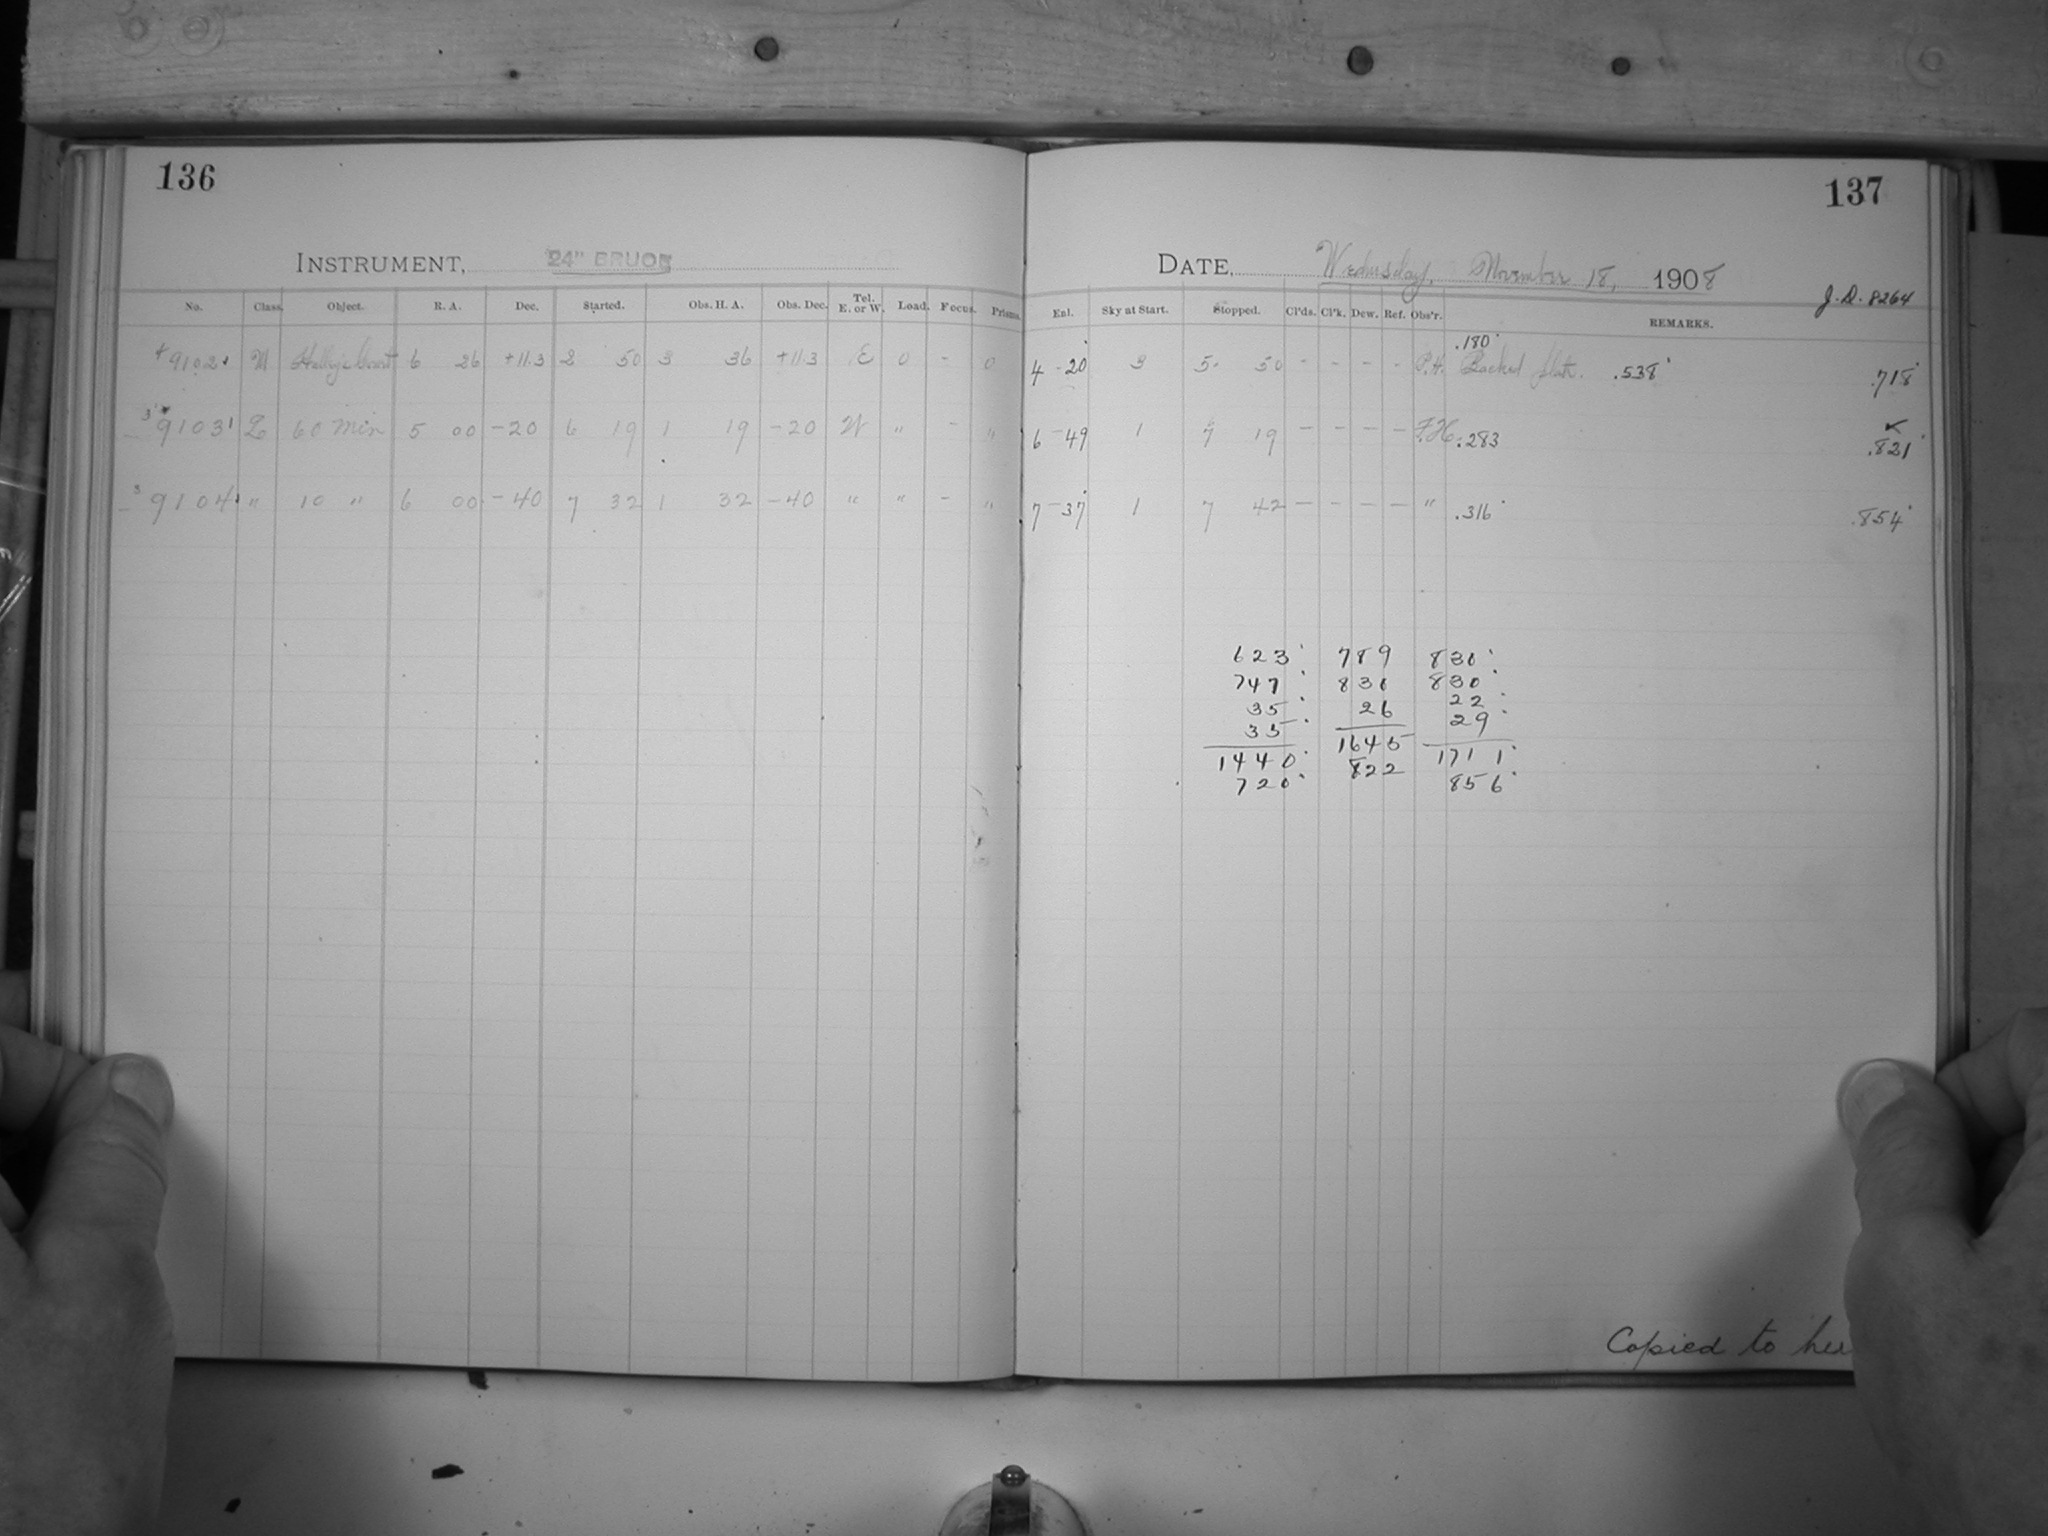 136
INSTRUMENT, 24" BRUCE
No. Class. Object. R. A. Dec. Started. Obs. H. A. Obs. Dec. Tel. E. or W. Load. Focus. Prisms.
9102 M Halley's Comet 6 26 +11.3 2 50 3 36 +11.3 E 0 - 0
9103 L 60 min 5 00 -20 6 19 1 19 -20 W " - "
9104 " 10 " 6 00 -40 7 32 1 32 -40 " " - "
137
DATE, Wednesday, November 18, 1908
J.D. 8264
Enl. Sky at Start. Stopped. Cl'ds. Cl'k. Dew. Ref. Obs'r. REMARKS.
.180
4-20 3 5 50 - - - - P.H. Backed plate. .538 .718
6-49 1 7 19 - - - - F.H. .283 .821
7-37 1 7 42 - - - - " .316 .854
623 789 830
747 830 830
35 26 22
35 1645 29
1440 822 1711
720 856
Copied to her